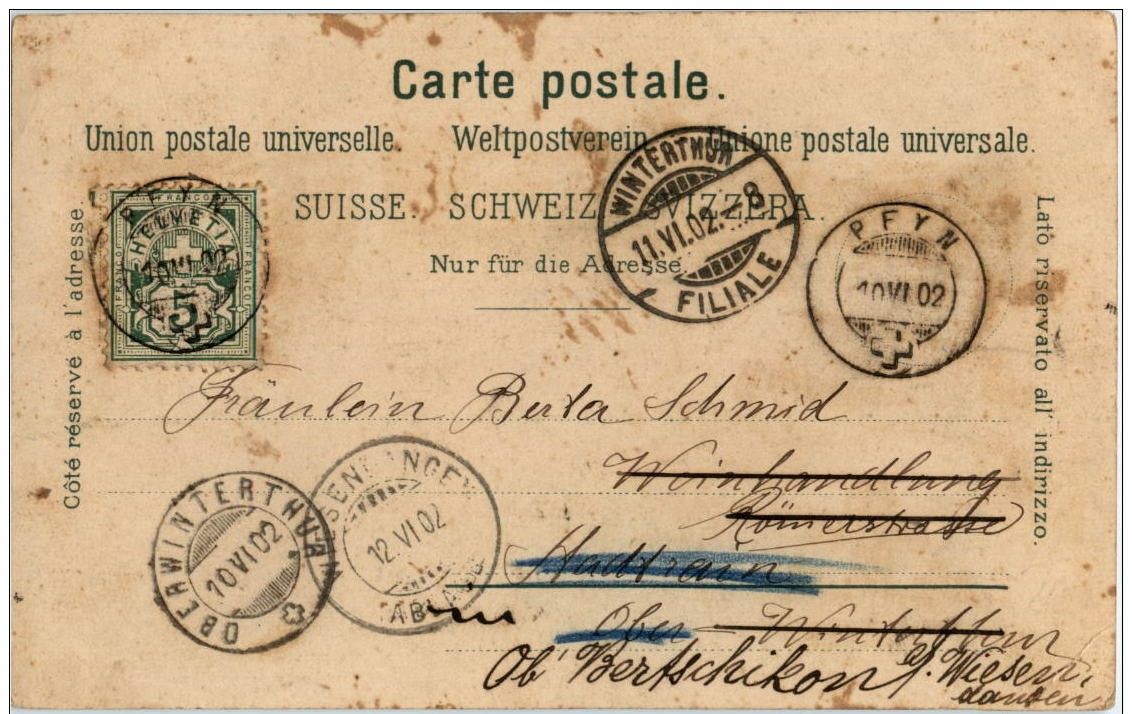 Carte postale.
Union postale universelle. Weltpostverein Unione postale universale.
SUISSE. SCHWEIZ SVIZZERA.
Nur für die Adresse.
Côté réservé à l'adresse.
Lato riservato all' indirizzo.
FRANCO
HELVETIA
FRANCO
FRANCO
5
PFYN
10 VI 02
WINTERTHUR
11.VI.02.-8
FILIALE
PFYN
10 VI 02
Fräulein Berta Schmid
Weinhandlung
Römerstrasse
Stadtrain
Ober-Winterthur
Ob' Bertschikon
OBERWINTERTHUR
10 VI 02
WIESENDANGEN
12.VI 02
ABLAGE